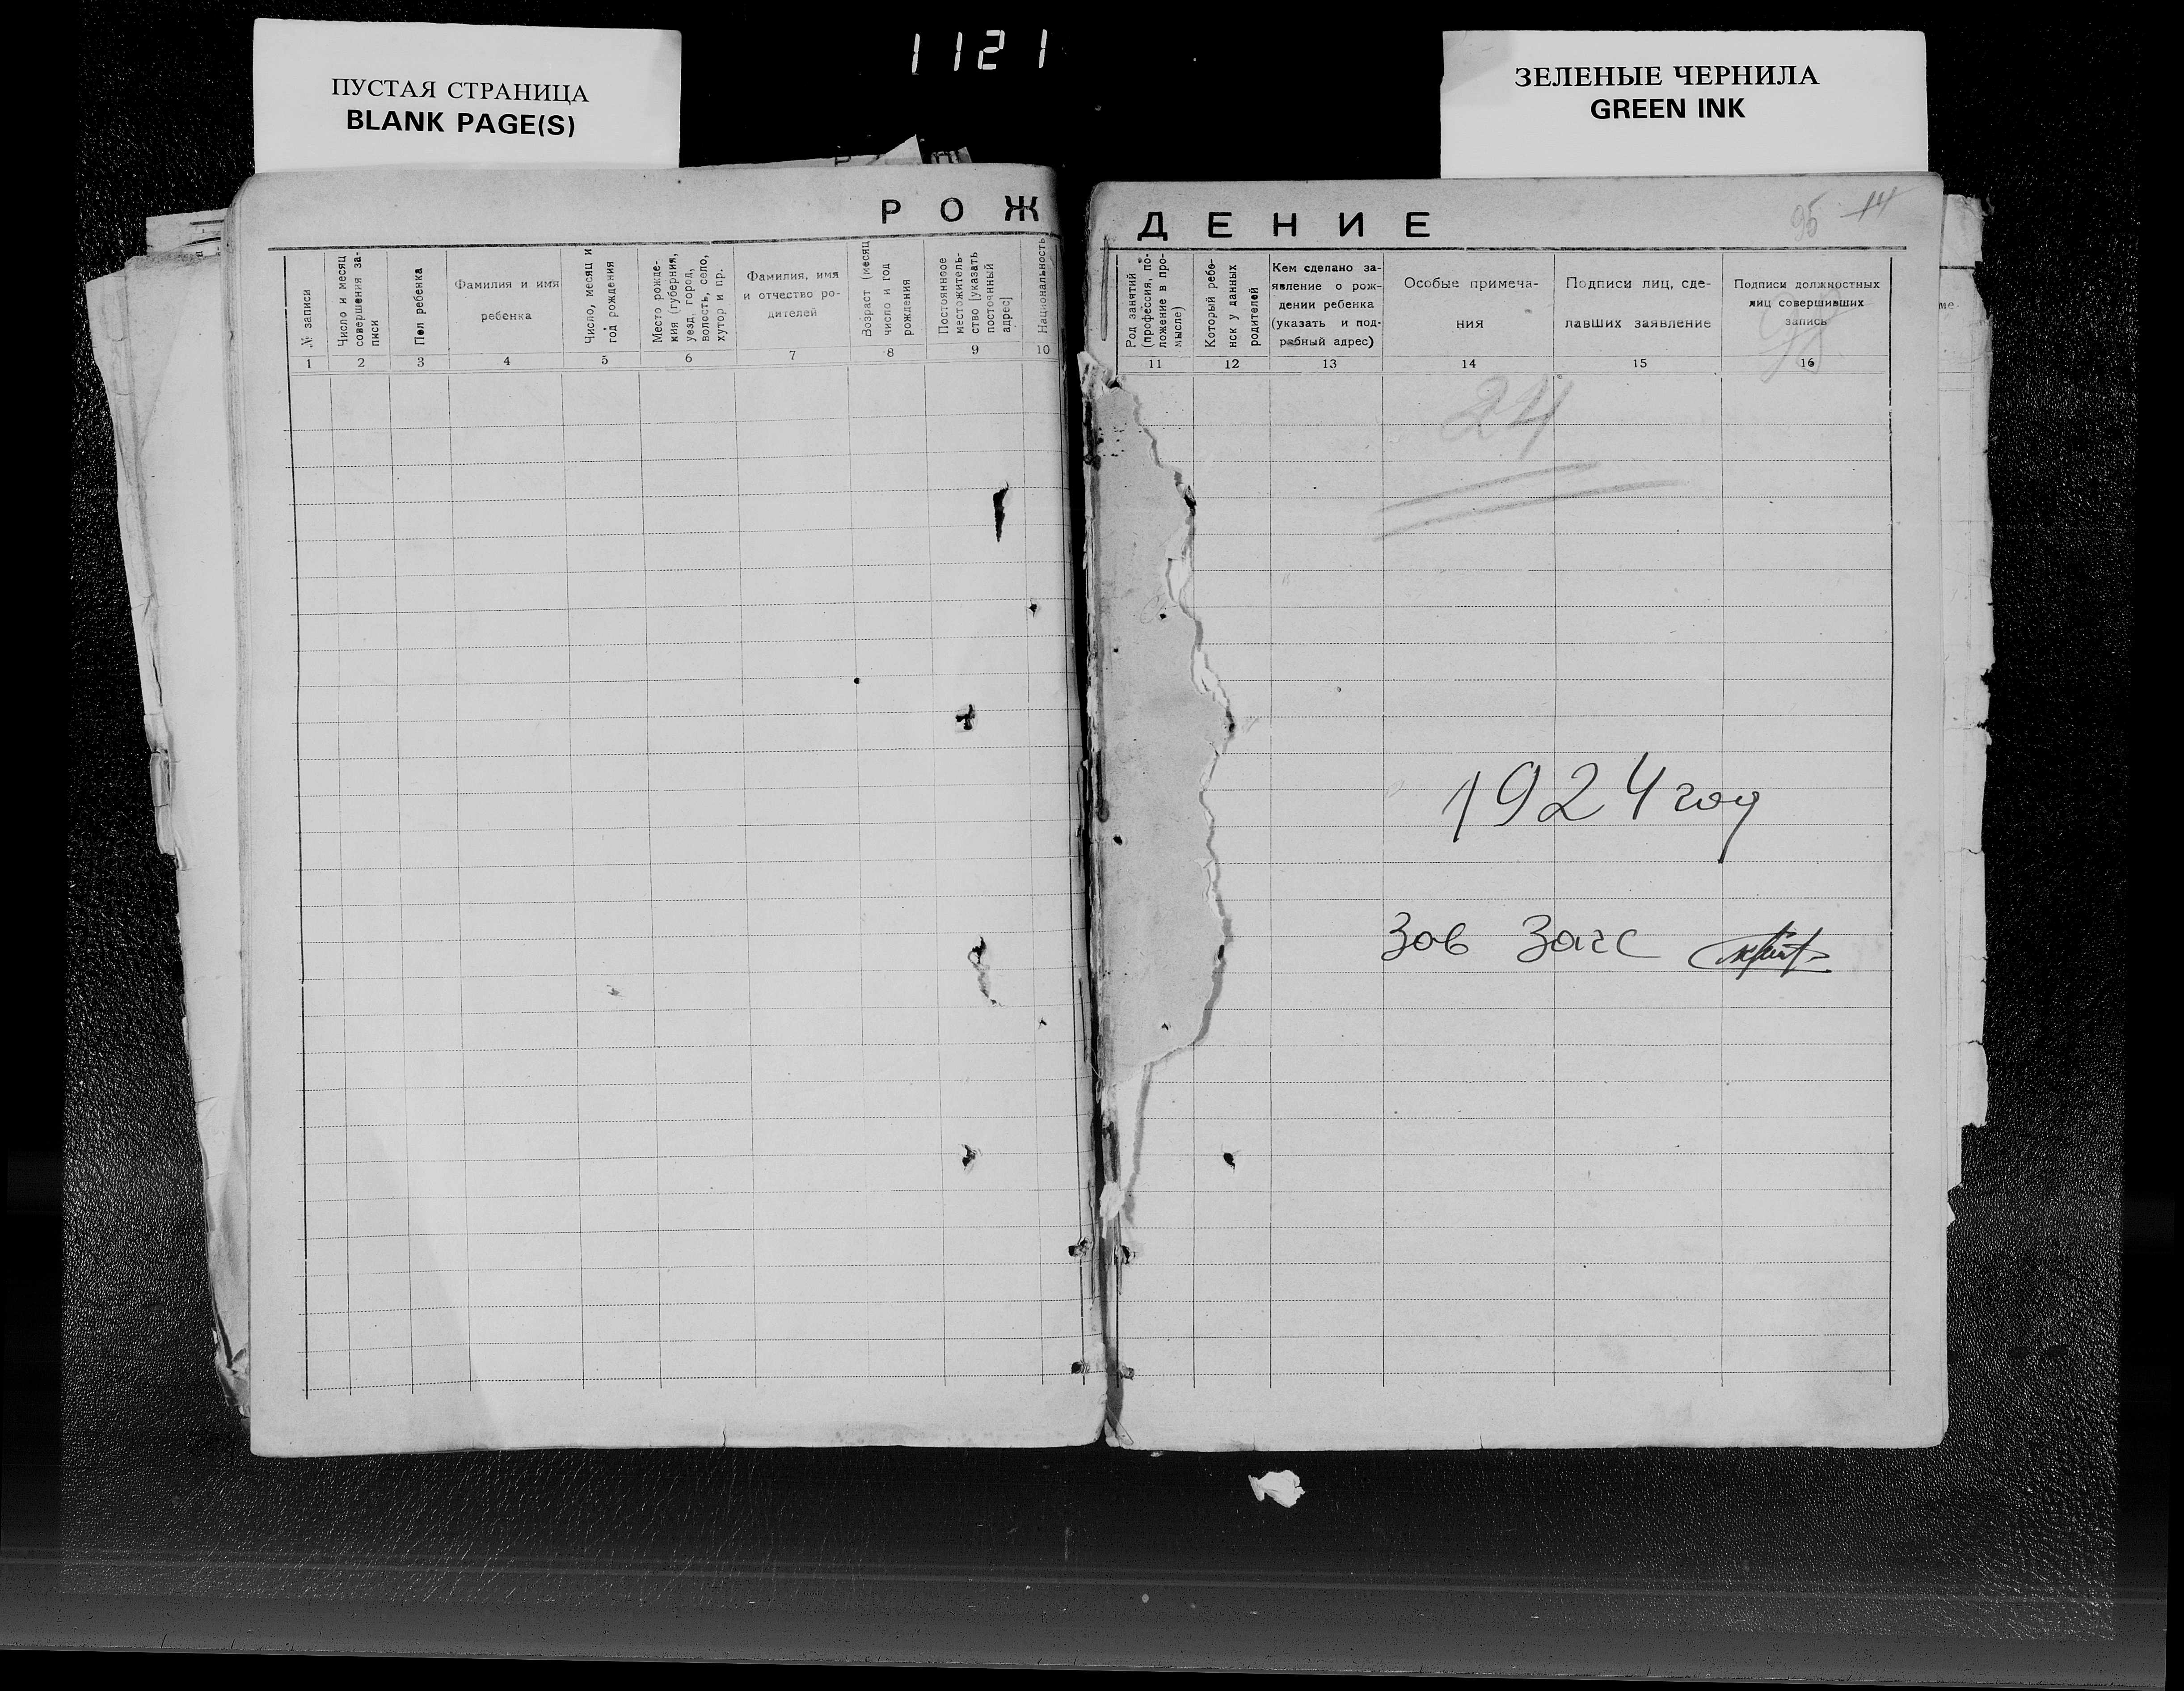 1121
ПУСТАЯ СТРАНИЦА
BLANK PAGE(S)
ЗЕЛЕНЫЕ ЧЕРНИЛА
GREEN INK
РОЖДЕНИЕ
95 14
№ записи
Число и месяц
совершения за-
писи
Пол ребенка
Фамилия и имя
ребенка
Число, месяц и
год рождения
Место рожде-
ния (губерния,
уезд, город,
волость, село,
хутор и пр.
Фамилия, имя
и отчество ро-
дителей
Возраст (месяц
число и год
рождения
Постоянное
местожитель-
ство [указать
постоянный
адрес]
Национальность
1 2 3 4 5 6 7 8 9 10
Род занятий
(профессия, по-
ложение в про-
мысле)
Который ребе-
нск у данных
родителей
Кем сделано за-
явление о рож-
дении ребенка
(указать и под-
робный адрес)
Особые примеча-
ния
Подписи лиц, сде-
лавших заявление
Подписи должностных
лиц совершивших
запись
11 12 13 14 15 16
24
1924 год
Зов Загс